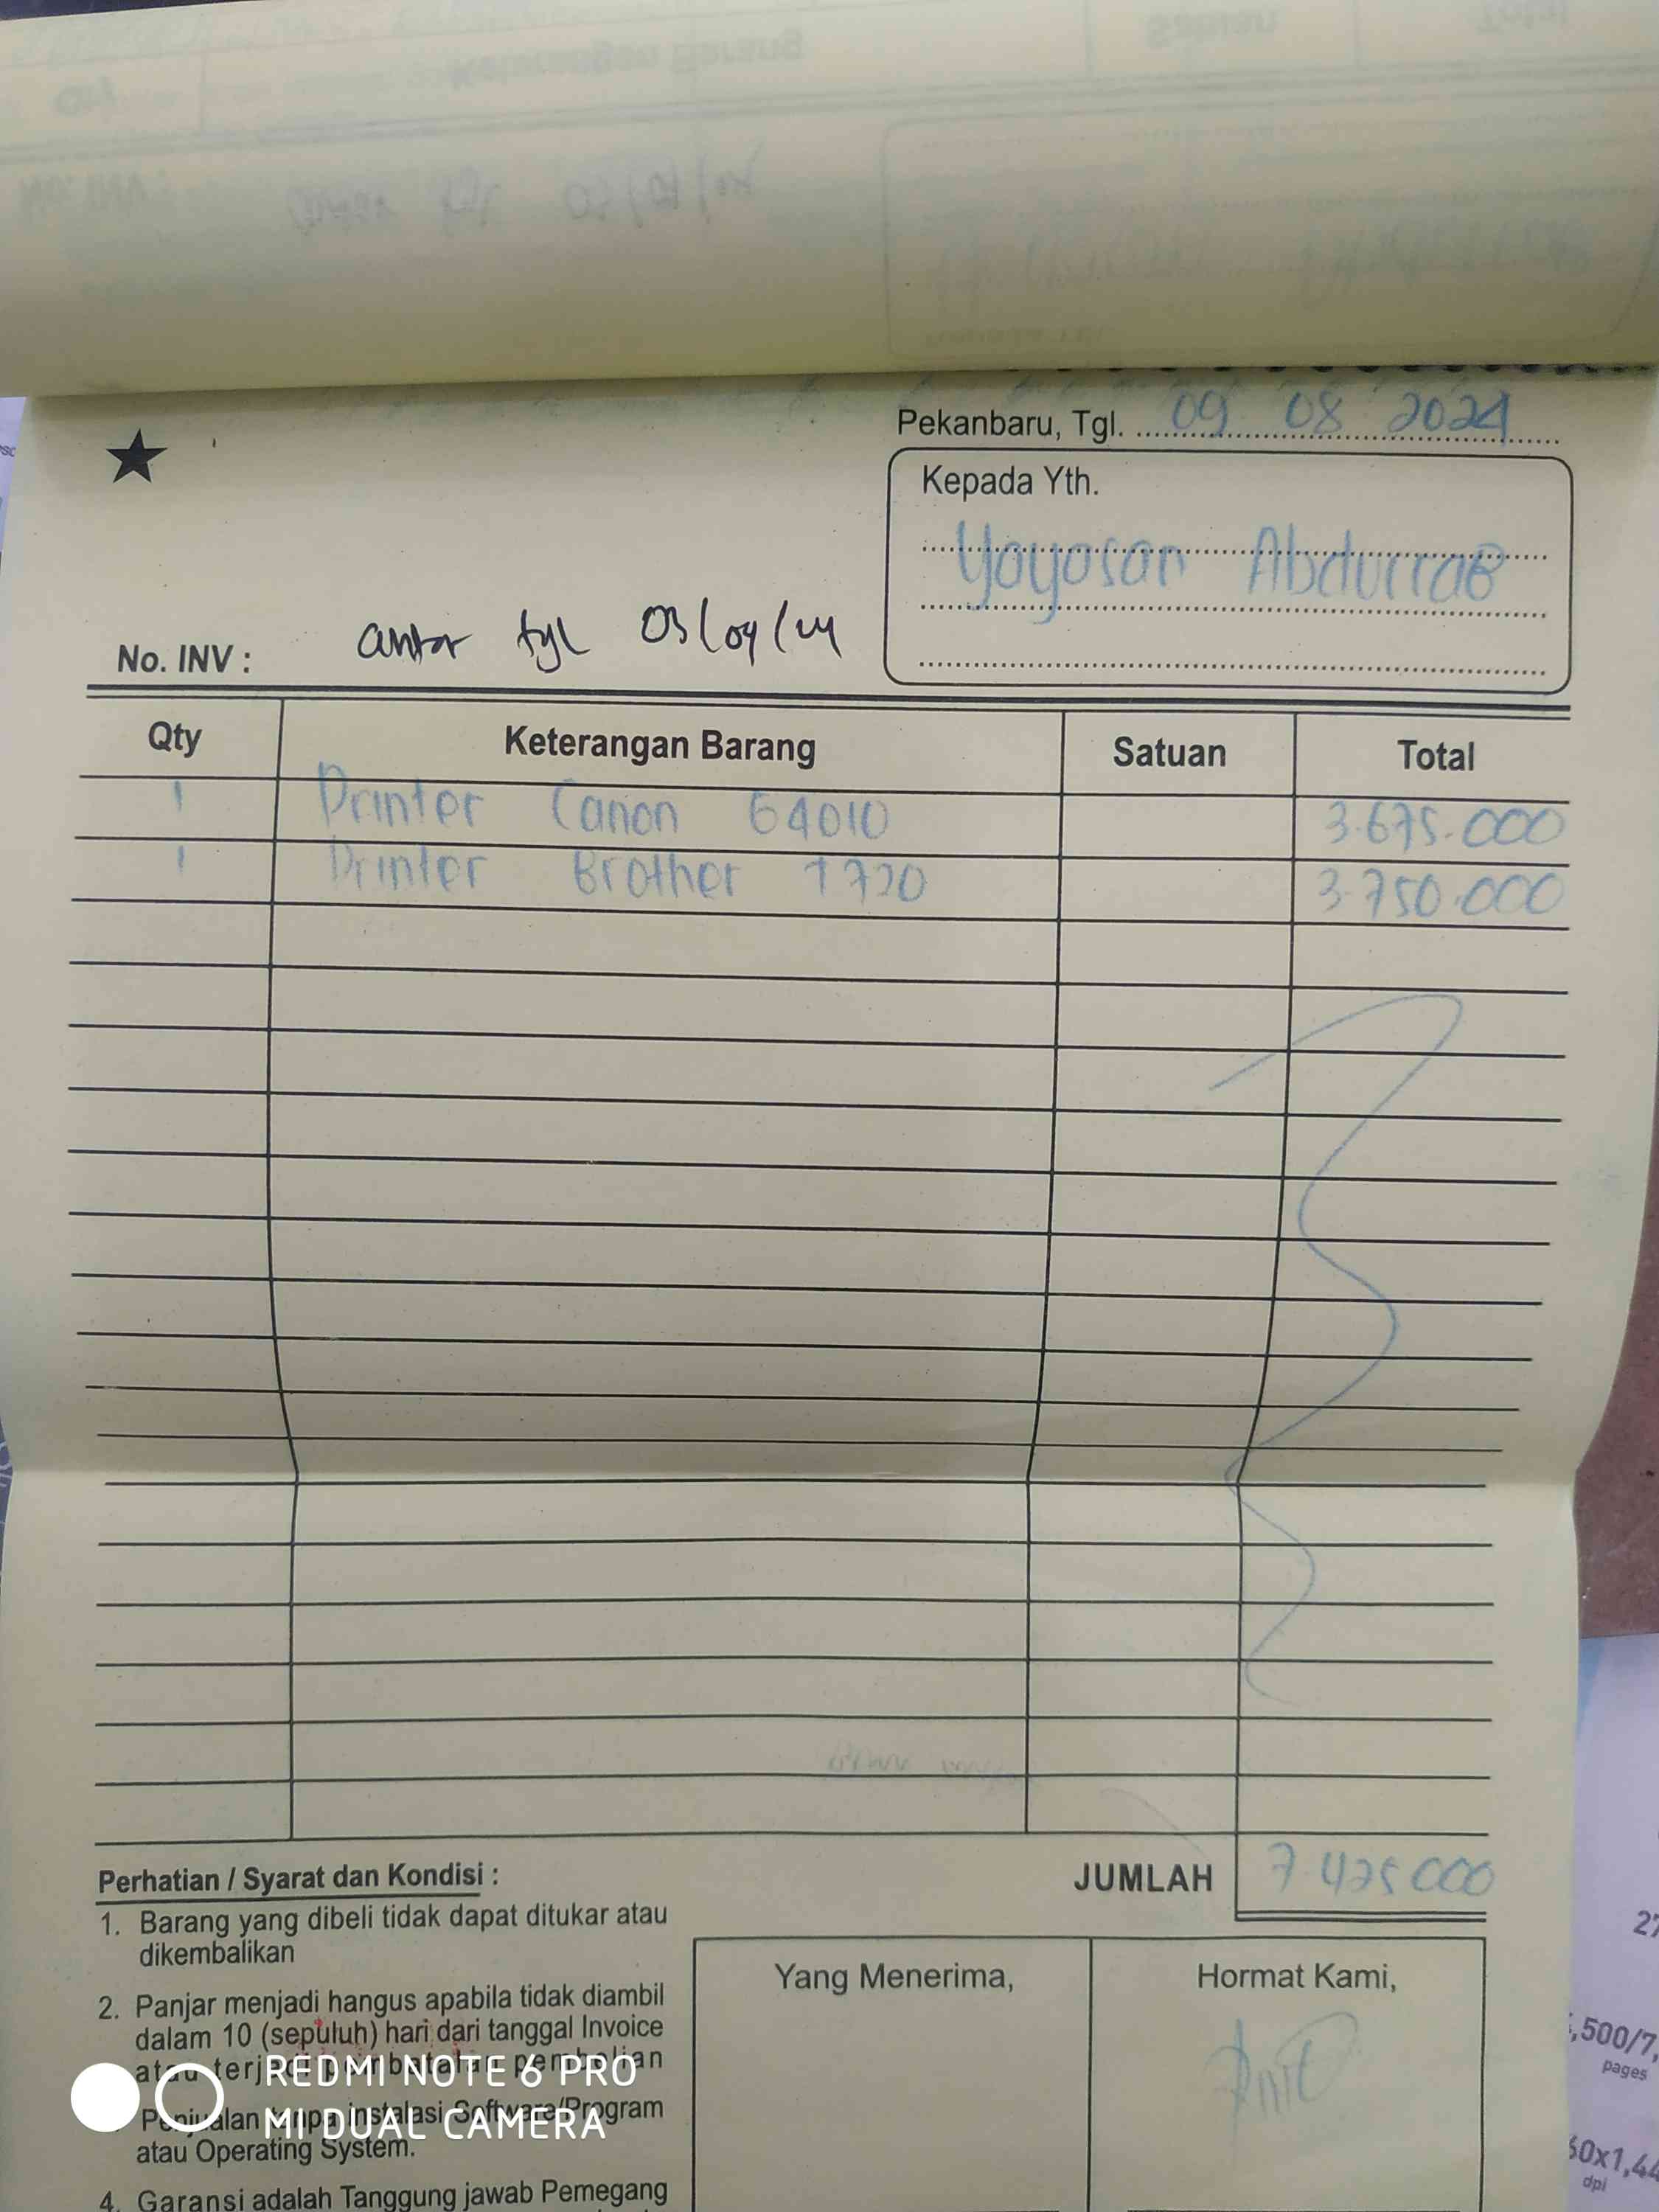 Pekanbaru, Tgl. 09 08 2024
Kepada Yth.
Yayasan Abdurrab
No. INV : antar tgl 03/09/24
Qty Keterangan Barang Satuan Total
1 Printer Canon G4010 3.675.000
1 Printer Brother T720 3.750.000
JUMLAH 7.425.000
Perhatian / Syarat dan Kondisi :
1. Barang yang dibeli tidak dapat ditukar atau
dikembalikan
2. Panjar menjadi hangus apabila tidak diambil
dalam 10 (sepuluh) hari dari tanggal Invoice
atau terjadi pembatalan pembelian
Penjualan tanpa instalasi Software/Program
atau Operating System.
4. Garansi adalah Tanggung jawab Pemegang
Yang Menerima,
Hormat Kami,
REDMI NOTE 6 PRO
MI DUAL CAMERA
27
,500/7,
pages
60x1,44
dpi